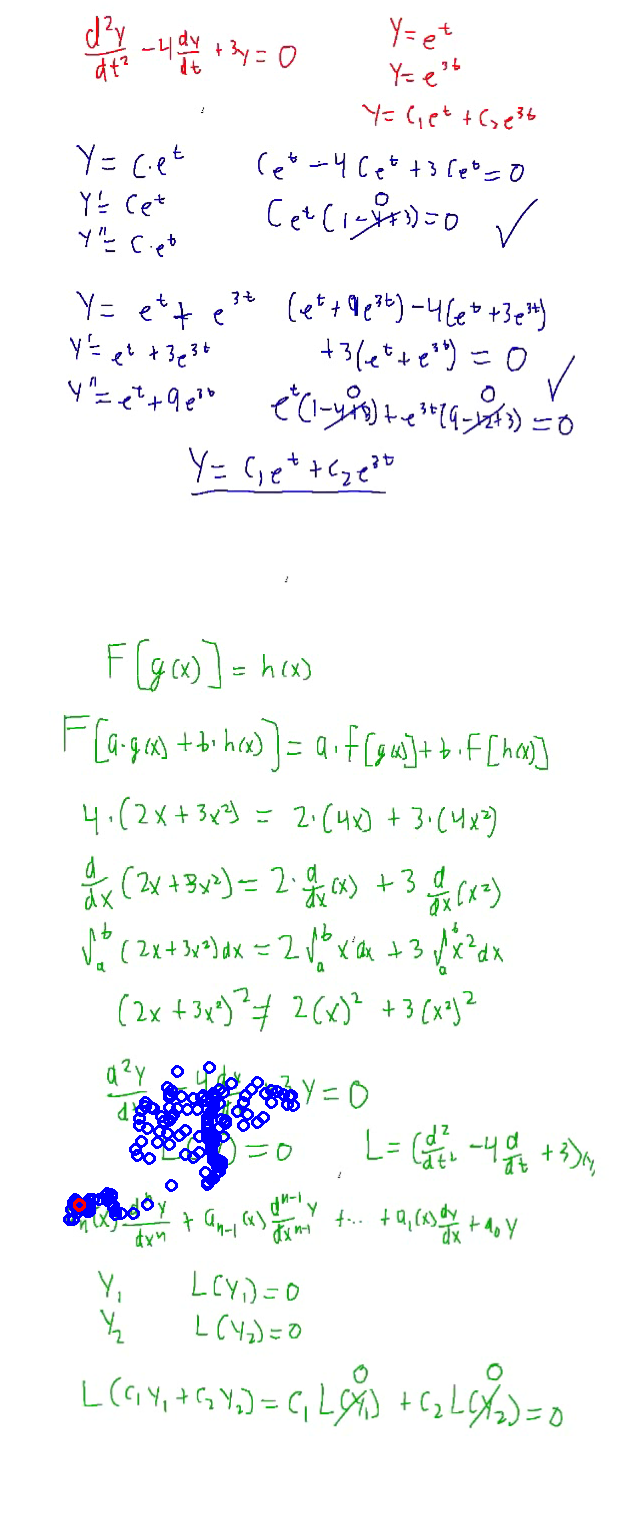 d²y/dt² - 4 dy/dt + 3y = 0
y = e^t
y = e^3t
y = C₁e^t + C₂e^3t
y = C·e^t
Ce^t - 4Ce^t + 3Ce^t = 0
y' = Ce^t
Ce^t(1-4+3) = 0 ✓
0
y'' = C·e^t
y = e^t + e^3t
(e^t + 9e^3t) - 4(e^t + 3e^3t)
y' = e^t + 3e^3t
+3(e^t + e^3t) = 0 ✓
y'' = e^t + 9e^3t
0 0
e^t(1-4+3) + e^3t(9-12+3) = 0
y = C₁e^t + C₂e^3t
F[g(x)] = h(x)
F[a·g(x) + b·h(x)] = a·F[g(x)] + b·F[h(x)]
4·(2x + 3x²) = 2·(4x) + 3·(4x²)
d/dx (2x + 3x²) = 2·d/dx (x) + 3 d/dx (x²)
∫_a^b (2x + 3x²)dx = 2∫_a^b x dx + 3∫_a^b x² dx
(2x + 3x²)² ≠ 2(x)² + 3(x²)²
y = 0
= 0
L = (d²/dt² - 4 d/dt + 3)(y)
(x) y/dx^n + a_{n-1}(x) d^{n-1}y/dx^{n-1} + ... + a₁(x) dy/dx + a₀y
y₁ L(y₁) = 0
y₂ L(y₂) = 0
0 0
L(C₁y₁ + C₂y₂) = C₁L(y₁) + C₂L(y₂) = 0